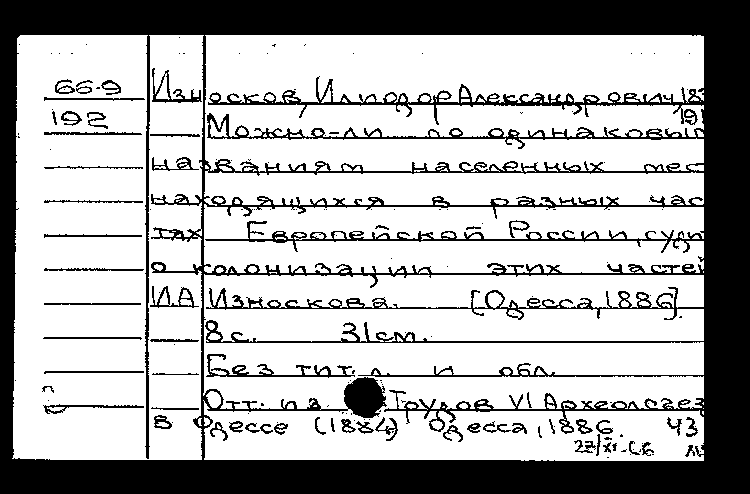 66-9
192
Износков, Илиодор Александрович, 183
191
Можно-ли по одинаковым
названиям населенных мес
находящихся в разных час
тях Европейской России, суди
о колонизации этих частей
И.А Износкова. [Одесса, 1886].
8 с. 31 см.
Без тит. л. и обл.
Отт. из Трудов VI Археол. съез
в Одессе (1884) Одесса, 1886. 43